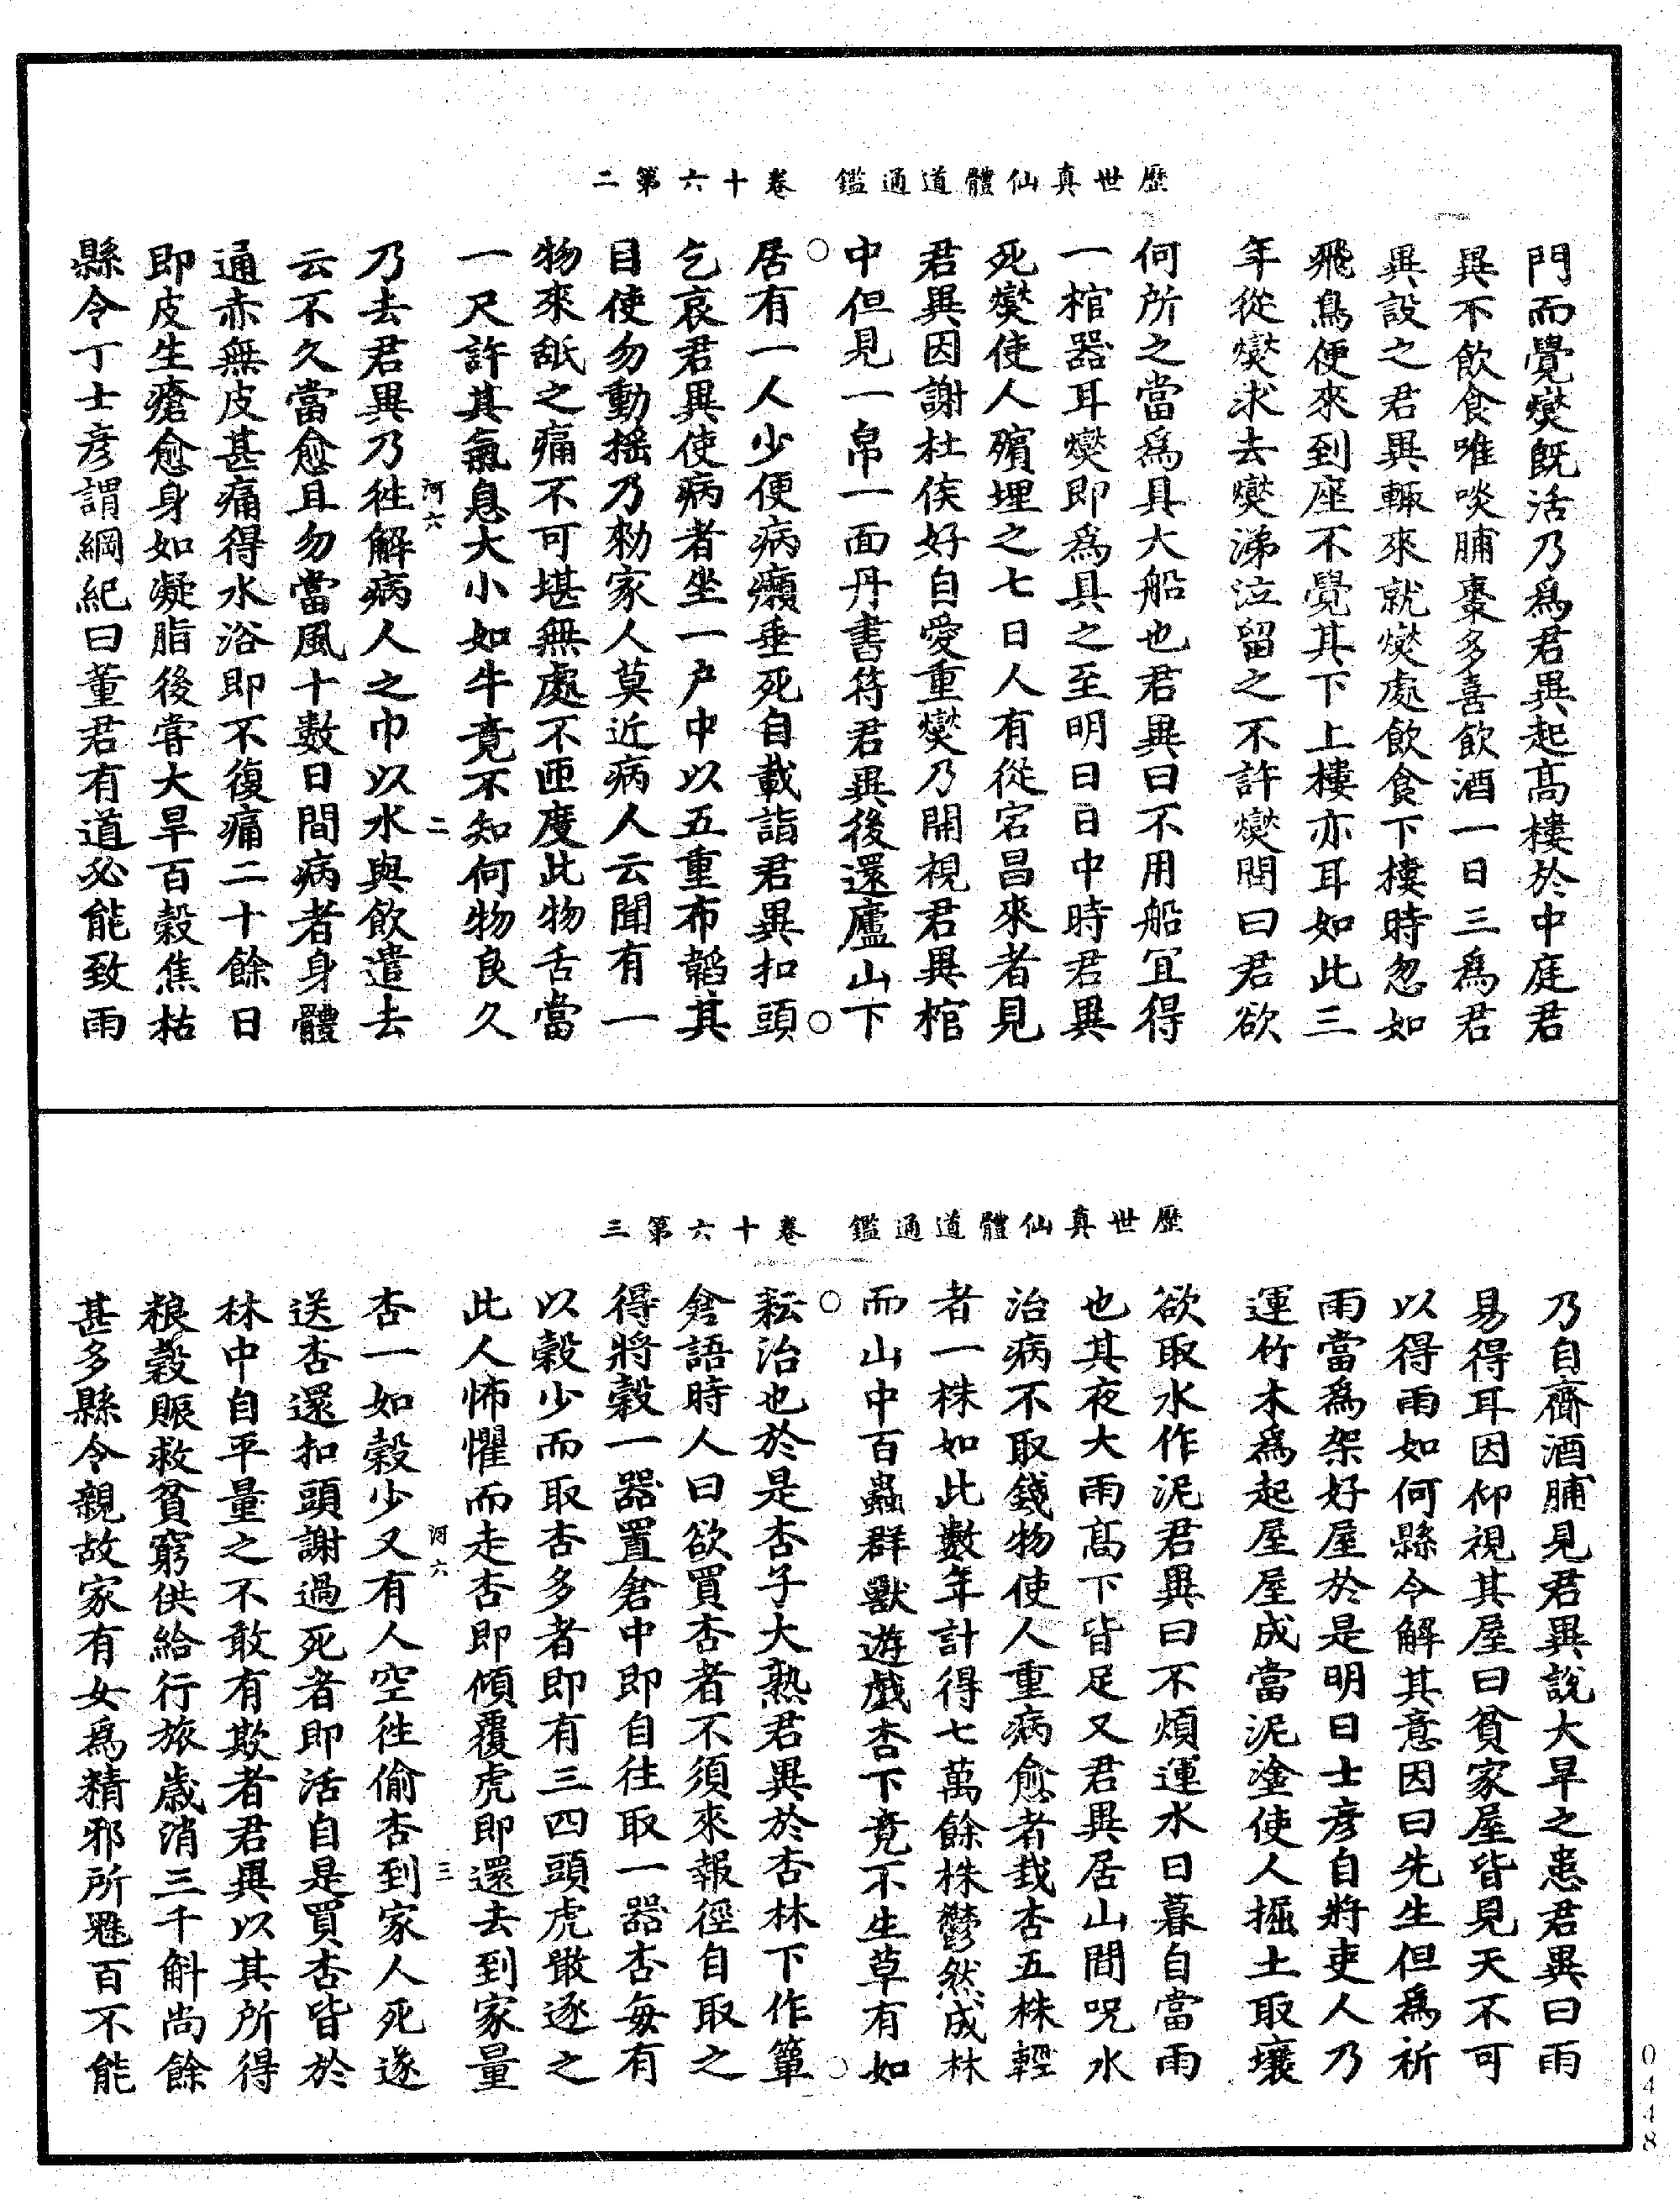 歷世真仙體道通鑑　卷十六第二
門而覺燮既活乃爲君異起高樓於中庭君
異不飲食唯啖脯棗多喜飲酒一日三爲君
異設之君異輒來就燮處飲食下樓時忽如
飛鳥便來到座不覺其下上樓亦耳如此三
年從燮求去燮涕泣留之不許燮問曰君欲
何所之當爲具大船也君異曰不用船冝得
一棺器耳燮即爲具之至明日日中時君異
死燮使人殯埋之七日人有從宕昌來者見
君異因謝杜侯好自愛重燮乃開視君異棺
中但見一帛一面丹書符君異後還廬山下
居有一人少便病癩垂死自載詣君異扣頭
乞哀君異使病者坐一户中以五重布韜其
目使勿動搖乃勑家人莫近病人云聞有一
物來舐之痛不可堪無處不匝度此物舌當
一尺許其氣息大小如牛竟不知何物良久
河六　二
乃去君異乃徃解病人之巾以水與飲遣去
云不久當愈且勿當風十數日間病者身體
通赤無皮甚痛得水浴即不復痛二十餘日
即皮生瘡愈身如凝脂後嘗大旱百穀焦枯
縣令丁士彥謂綱紀曰董君有道必能致雨
歷世真仙體道通鑑　卷十六第三
乃自齎酒脯見君異說大旱之患君異曰雨
易得耳因仰視其屋曰貧家屋皆見天不可
以得雨如何縣令解其意因曰先生但爲祈
雨當爲架好屋於是明日士彥自將吏人乃
運竹木爲起屋屋成當泥塗使人掘土取壤
欲取水作泥君異曰不煩運水日暮自當雨
也其夜大雨高下皆足又君異居山間呪水
治病不取錢物使人重病愈者栽杏五株輕
者一株如此數年計得七萬餘株鬱然成林
而山中百蟲群獸遊戲杏下竟不生草有如
耘治也於是杏子大熟君異於杏林下作簞
倉語時人曰欲買杏者不須來報徑自取之
得將穀一器置倉中即自往取一器杏每有
以穀少而取杏多者即有三四頭虎噉逐之
此人怖懼而走杏即傾覆虎即還去到家量
河六　三
杏一如穀少又有人空徃偷杏到家人死遂
送杏還扣頭謝過死者即活自是買杏皆於
林中自平量之不敢有欺者君異以其所得
粮穀賑救貧窮供給行旅歲消三千斛尚餘
甚多縣令親故家有女爲精邪所魅百不能
0448